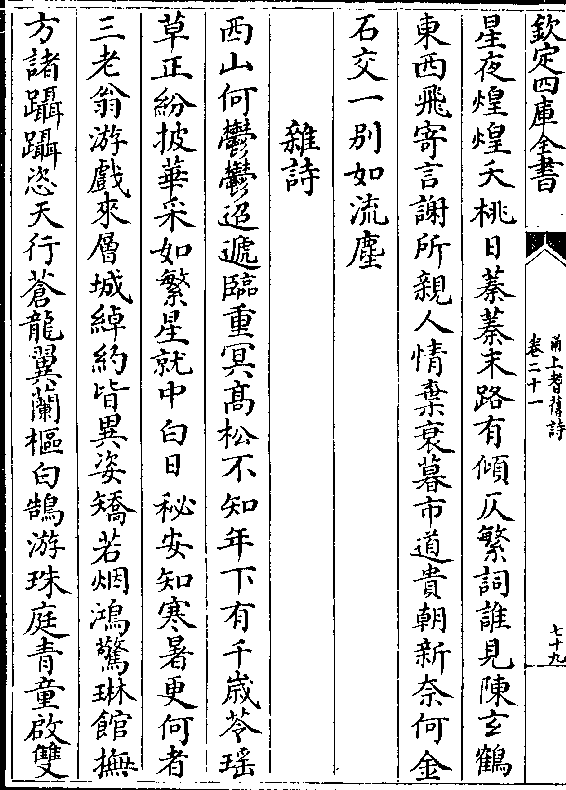 欽定四庫全書
甬上耆舊詩
卷二十一
七十九
星夜煌煌夭桃日蓁蓁末路有傾仄繁詞誰見陳玄鶴
東西飛寄言謝所親人情棄衰暮市道貴朝新奈何金
石交一別如流塵
雜詩
西山何鬱鬱迢遞臨重冥高松不知年下有千歲苓瑶
草正紛披華采如繁星就中白日秘安知寒暑更何者
三老翁游戲來層城綽約皆異姿矯若烟鴻驚琳館撫
方諸躡躡恣天行蒼龍翼蘭樞白鵠游珠庭青童啟雙